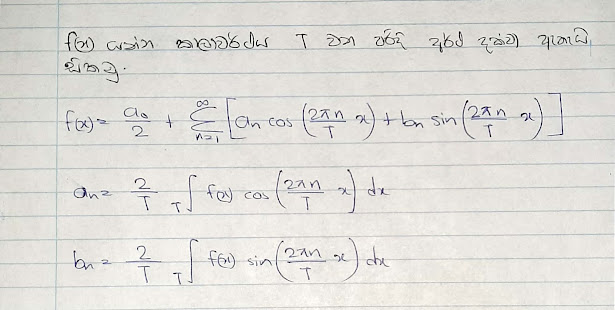 f(x) යන්න කාලාවර්තය T වන පරිදි අර්ථ දක්වා ඇතැයි
සිතමු.
f(x) = a₀/2 + ∑_{n=1}^{∞} [an cos (2πn/T x) + bn sin (2πn/T x)]
an = 2/T T∫ f(x) cos (2πn/T x) dx
bn = 2/T T∫ f(x) sin (2πn/T x) dx